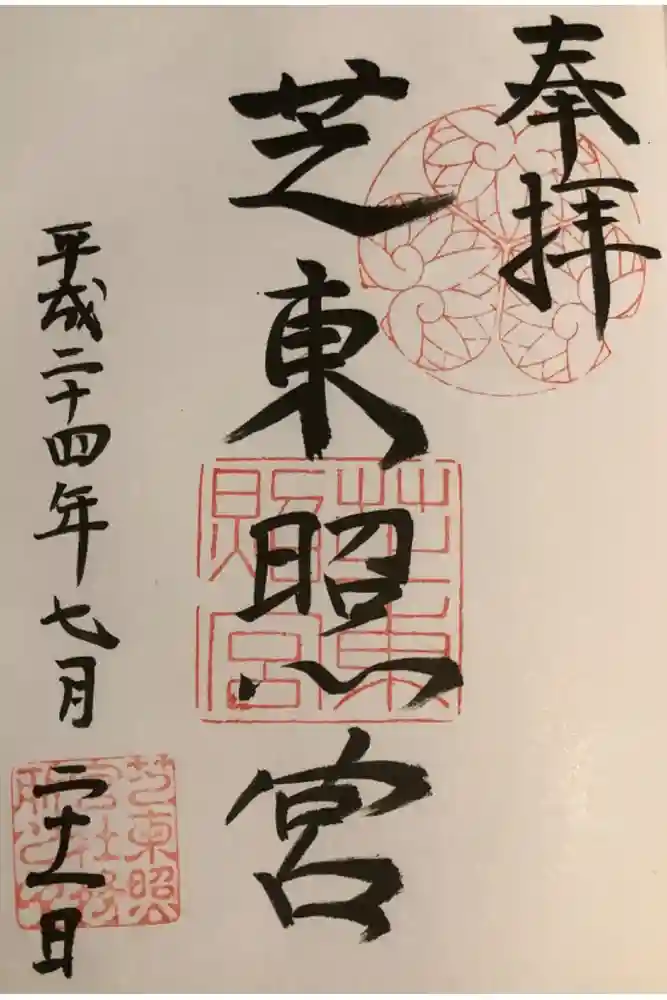 奉拝
芝東照宮
平成二十四年七月二十一日
芝東照宮
芝東照
宮社務
所之印